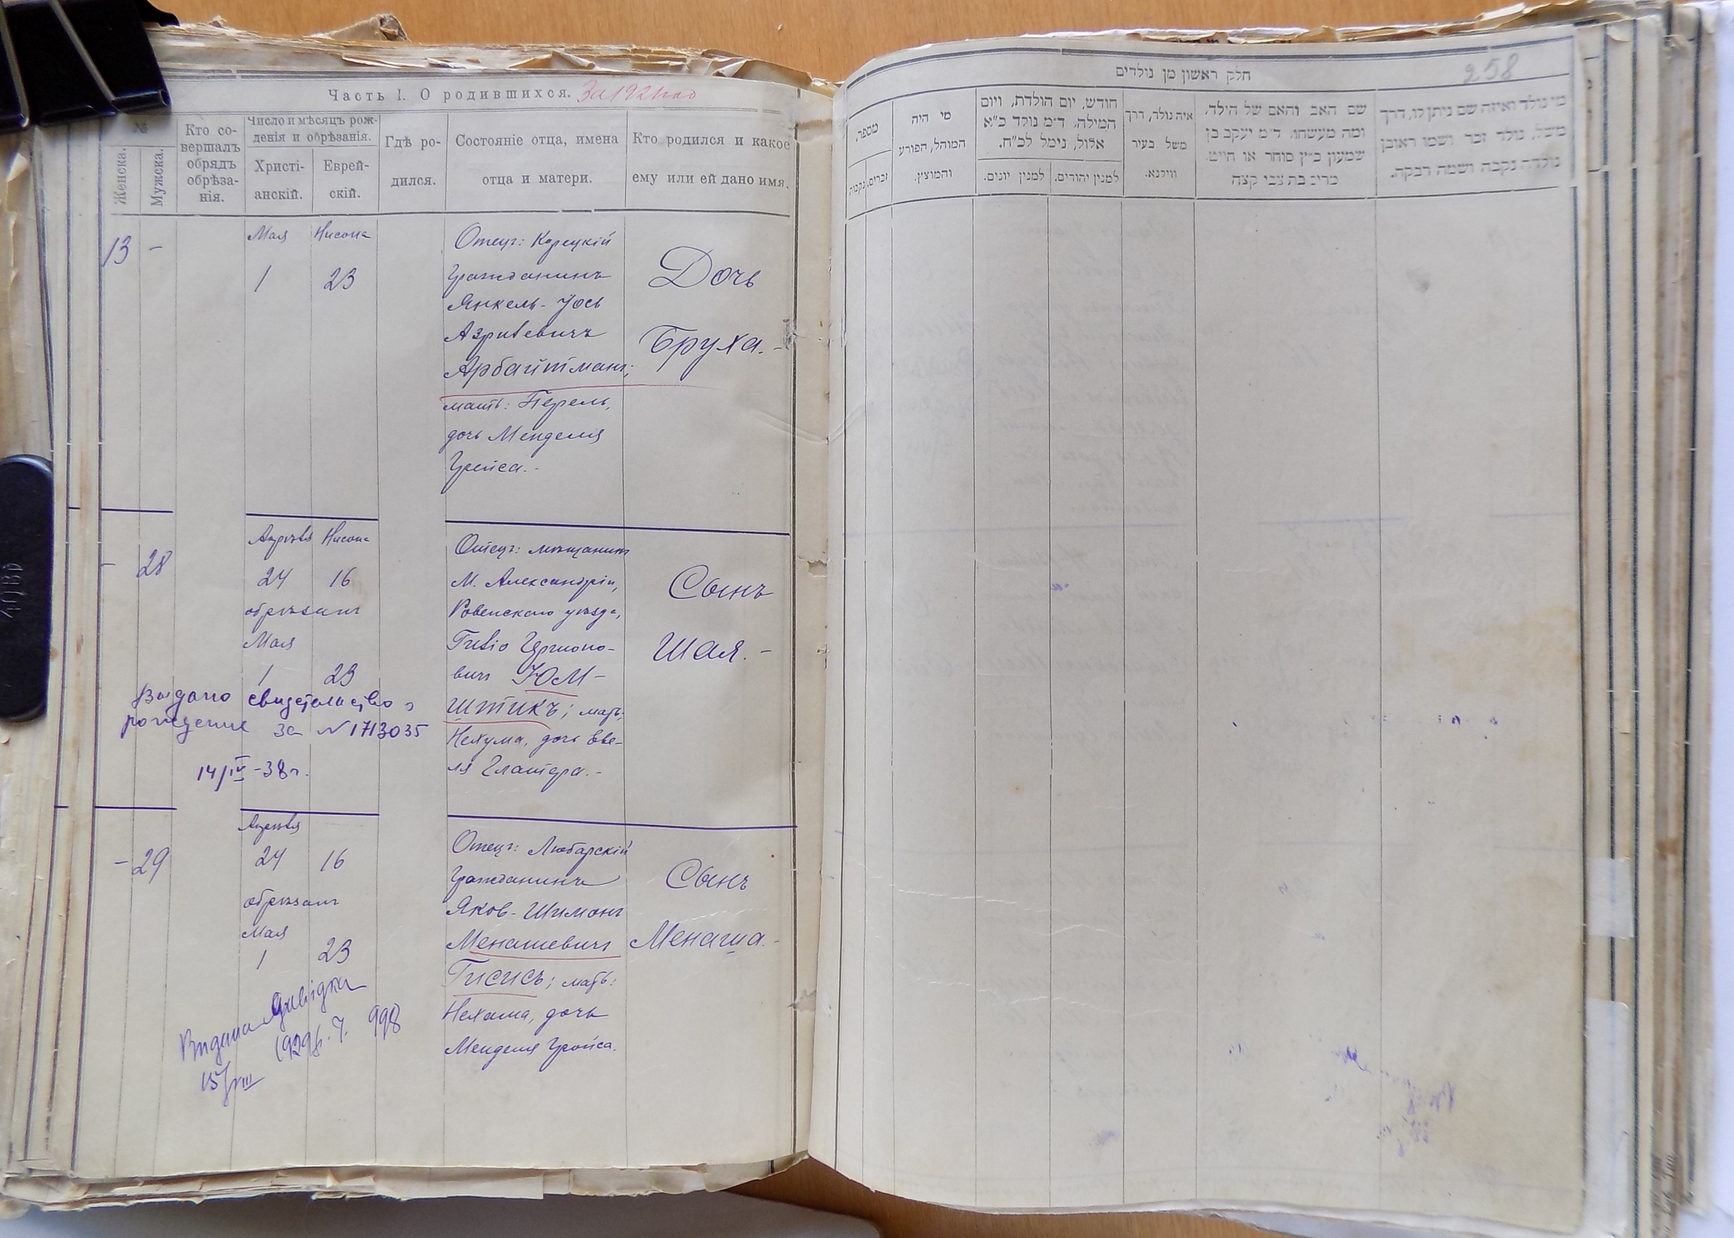 Часть I. О родившихся. За 1921 год
№
Женска.
Мужска.
Кто со-
вершалъ
обрядъ
обрѣза-
нія.
Число и мѣсяцъ рож-
денія и обрѣзанія.
Христі-
анскій.
Еврей-
скій.
Гдѣ ро-
дился.
Состояніе отца, имена
отца и матери.
Кто родился и какое
ему или ей дано имя.
13 -
Мая Нисона
1 23
Отецъ: Корецкій
Гражданинъ
Янкель-Іось
Азрилевичъ
Арбайтманъ;
мать: Перель,
дочь Менделя
Гройса.-
Дочь
Бруха.-
- 28
Апрѣля Нисона
24 16
обрѣзанъ
Мая
1 23
Отецъ: мѣщанинъ
М. Александріи,
Ровенскаго уѣзда,
вичъ ЮМ-
ШТИКЪ; мать:
Нехума, дочь Вве-
ля Глатера.-
Сынъ
Шая.-
Выдано свидетельство о
рождении за № 1713035
14/IV-38г.
- 29
Апрѣля
24 16
обрѣзанъ
Мая
1 23
Отецъ: Любарскій
Гражданинъ
Яков-Шимонъ
Менашевичъ
Гисисъ; мать:
Нехама, дочь
Менделя Гройса.
Сынъ
Менаша.-
Видана довідка
15/VIII 1929 р. Ч. 998
258
חלק ראשון מן נולדים
מי נולד ואיזה שם ניתן לו, דרך
משל, נולד זכר ושמו ראובן
נולדה נקבה ושמה רבקה.
שם האב והאם של הילד,
ומה מעשהו, ד״מ יעקב בן
שמעון כ״ץ סוחר או חייט,
מרים בת צבי קצה
איה נולד, דרך
משל בעיר
ווילנא.
חודש, יום הולדת, ויום
המילה, ד״מ נולד כ״א
אלול, נימל לכ״ח.
למנין יהודים.
למנין יונים.
מי היה
המוהל, הפורע
והמוצץ.
מספר.
זכרים.